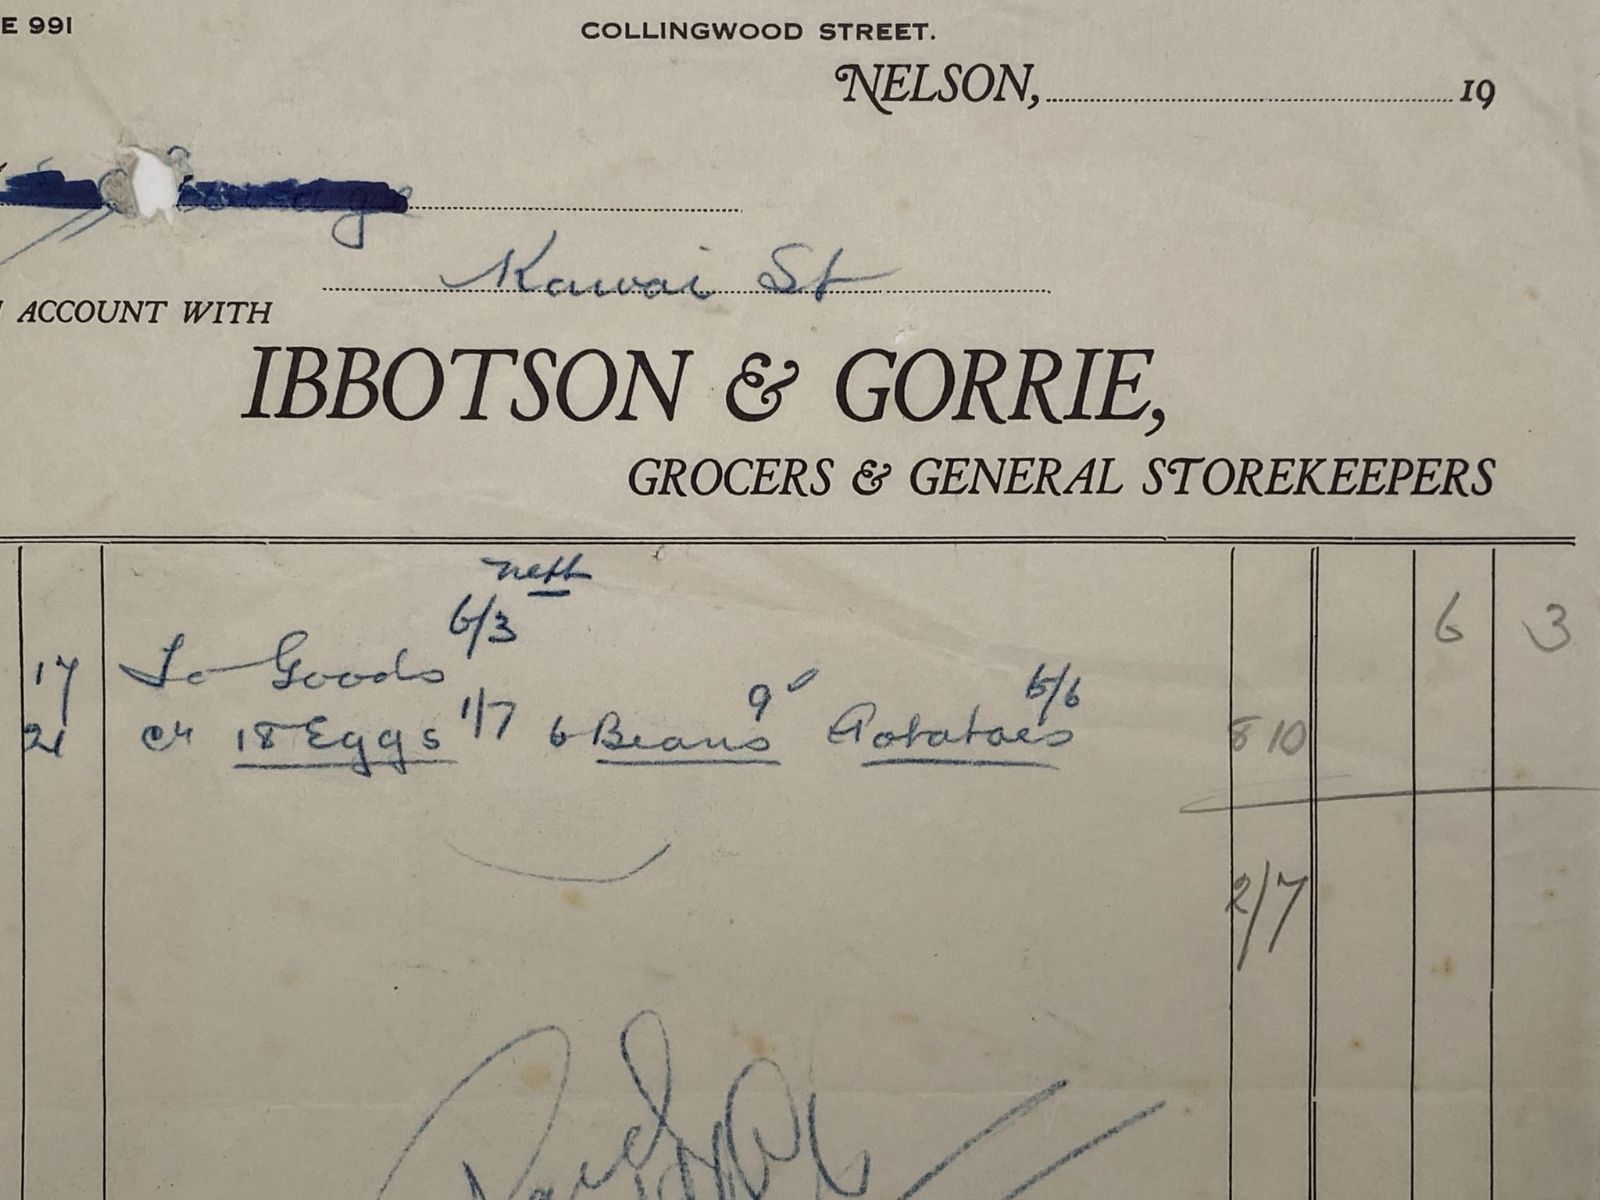 E 991
COLLINGWOOD STREET.
NELSON, 19
Kawai St
ACCOUNT WITH
IBBOTSON & GORRIE,
GROCERS & GENERAL STOREKEEPERS
nett
17 To Goods 6/3 6 3
21 cr 18 Eggs 1/7 6 Beans 9d Potatoes 6/6 8 10
2/7
Paid